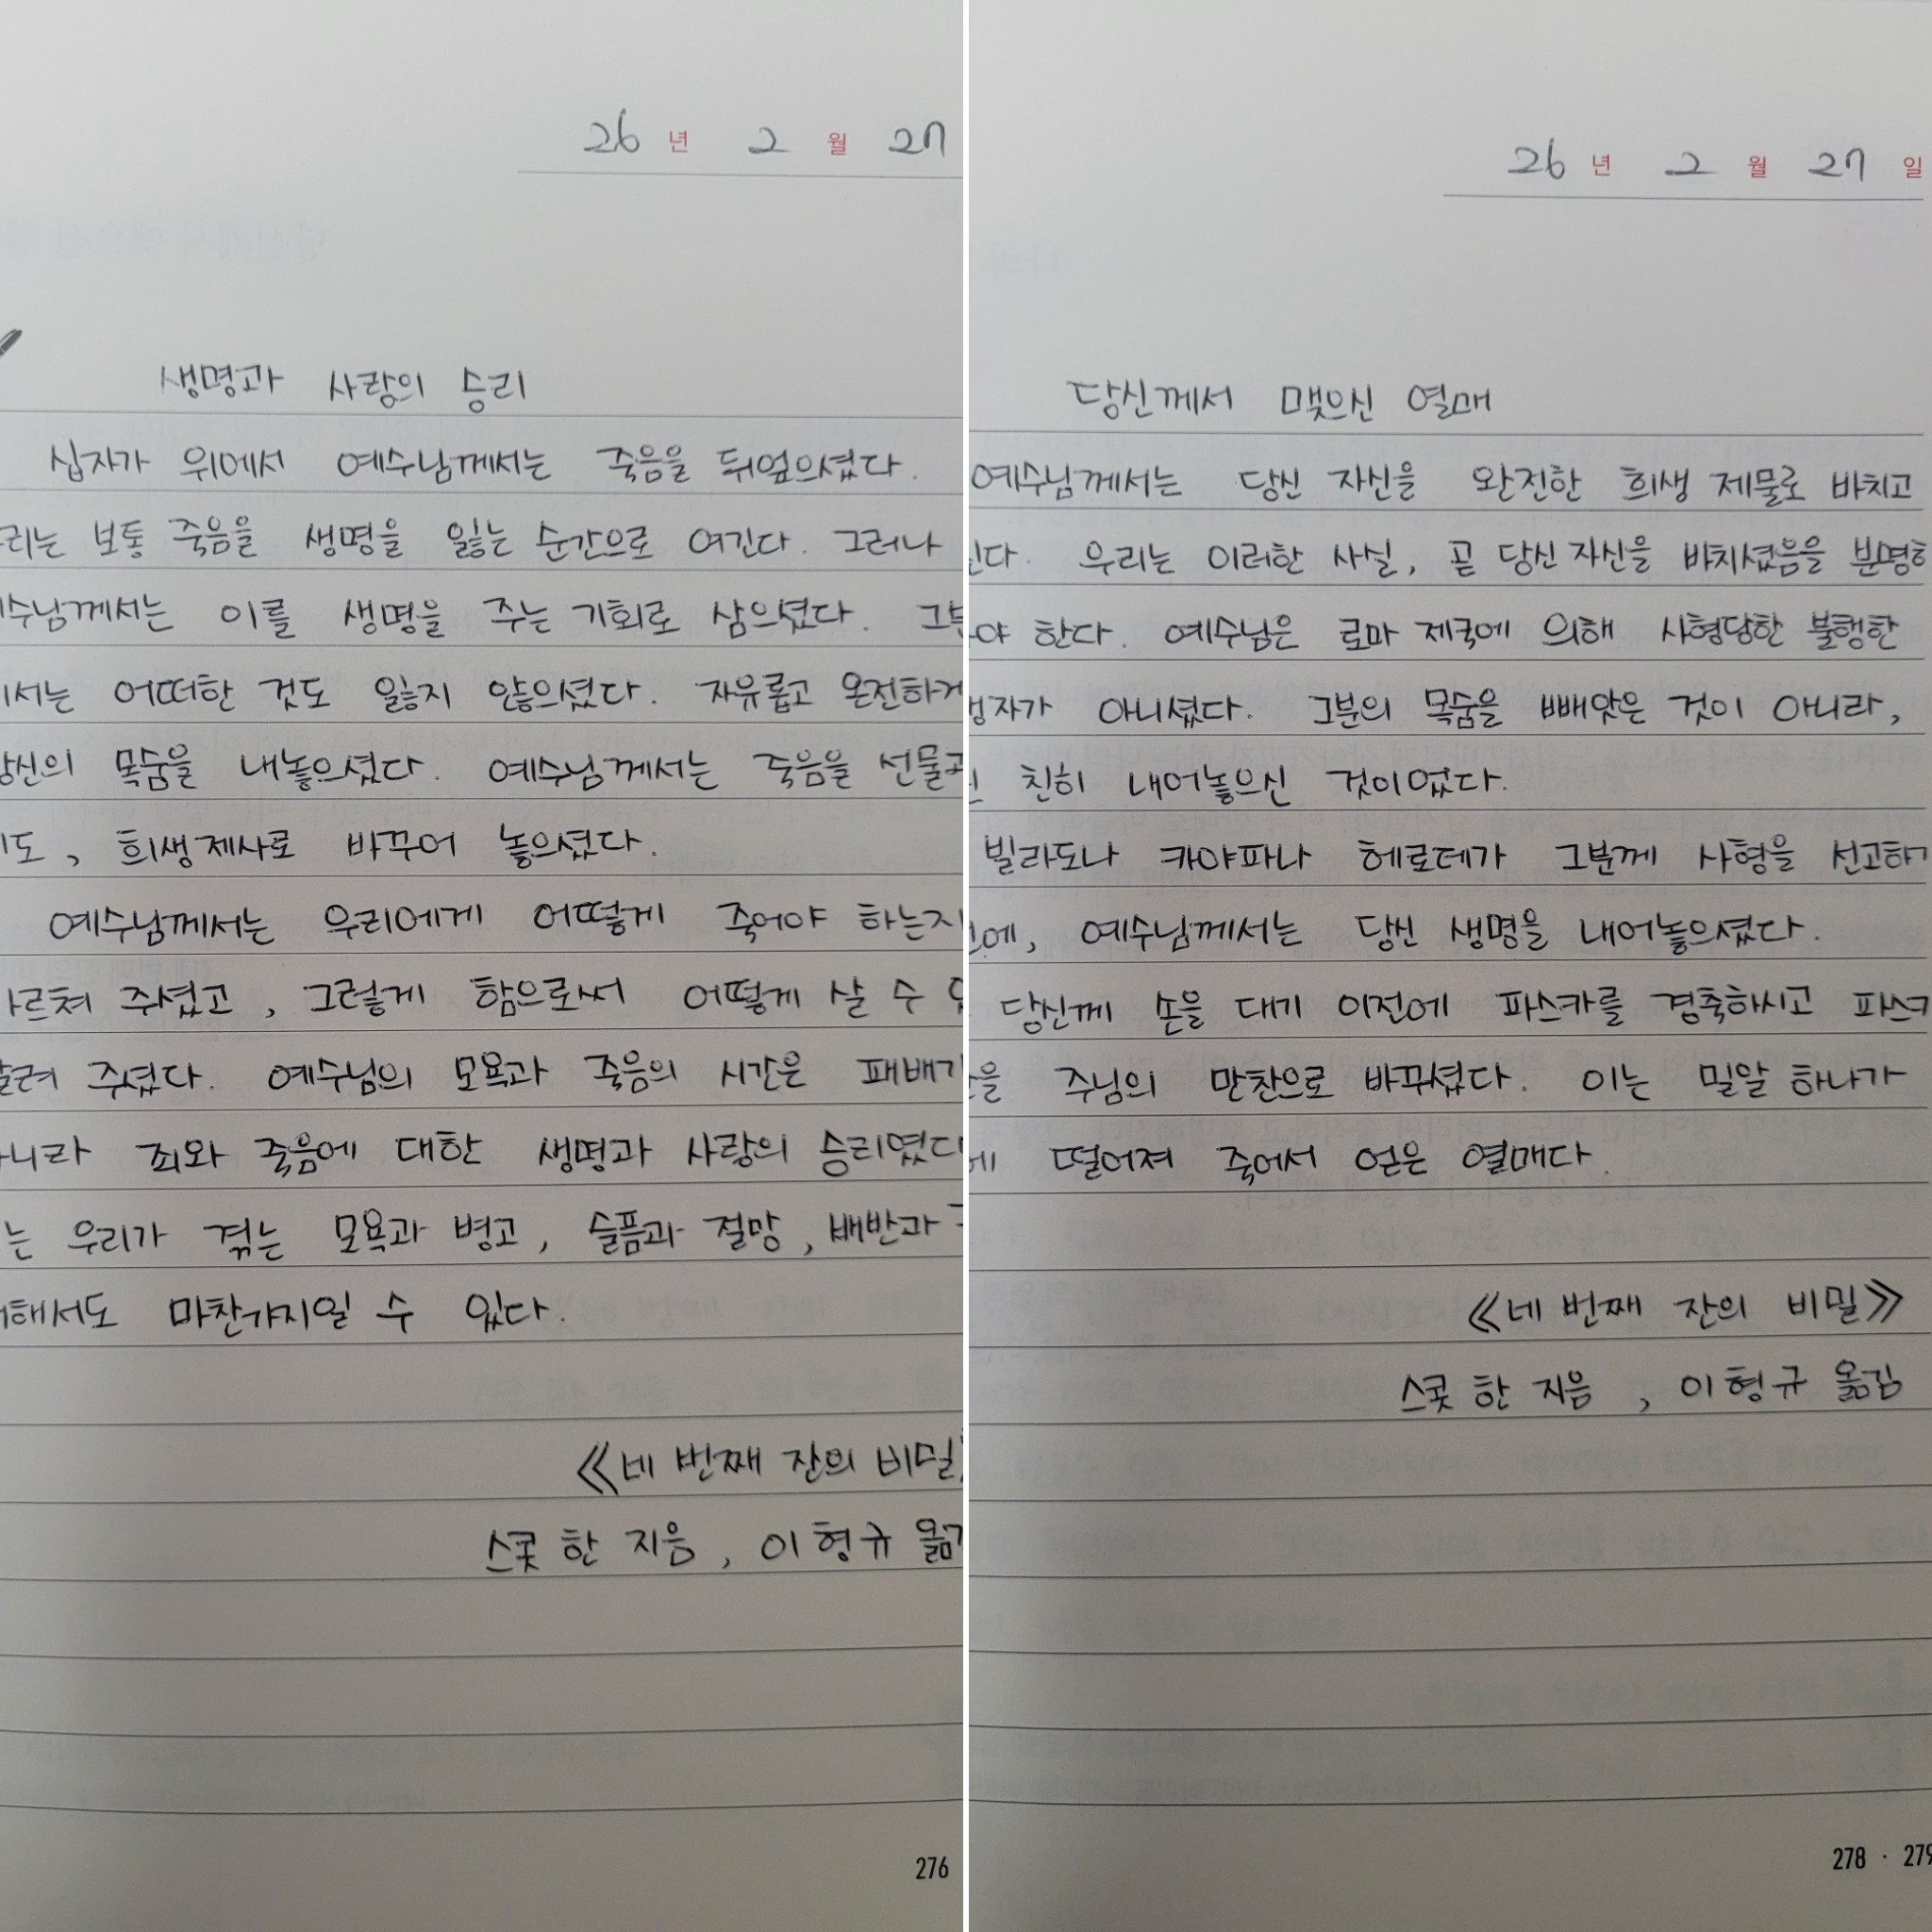 26 년 2 월 27
생명과 사랑의 승리
십자가 위에서 예수님께서는 죽음을 뒤엎으셨다.
리는 보통 죽음을 생명을 잃는 순간으로 여긴다. 그러나
수님께서는 이를 생명을 주는 기회로 삼으셨다. 그분
서는 어떠한 것도 잃지 않으셨다. 자유롭고 온전하게
신의 목숨을 내놓으셨다. 예수님께서는 죽음을 선물과
도, 희생제사로 바꾸어 놓으셨다.
예수님께서는 우리에게 어떻게 죽어야 하는지
르쳐 주셨고, 그렇게 함으로써 어떻게 살 수
려 주셨다. 예수님의 모욕과 죽음의 시간은 패배가
니라 죄와 죽음에 대한 생명과 사랑의 승리였다
는 우리가 겪는 모욕과 병고, 슬픔과 절망, 배반과
해서도 마찬가지일 수 있다.
≪네 번째 잔의 비밀
스콧 한 지음, 이형규 옮김
276
26 년 2 월 27 일
당신께서 맺으신 열매
예수님께서는 당신 자신을 완전한 희생 제물로 바치고
다. 우리는 이러한 사실, 곧 당신 자신을 바치셨음을 분명히
야 한다. 예수님은 로마 제국에 의해 사형당한 불행한
자가 아니셨다. 그분의 목숨을 빼앗은 것이 아니라,
친히 내어놓으신 것이었다.
빌라도나 카야파나 헤로데가 그분께 사형을 선고하기
에, 예수님께서는 당신 생명을 내어놓으셨다.
당신께 손을 대기 이전에 파스카를 경축하시고 파스카
을 주님의 만찬으로 바꾸셨다. 이는 밀알 하나가
에 떨어져 죽어서 얻은 열매다.
≪네 번째 잔의 비밀≫
스콧 한 지음, 이형규 옮김
278 · 279